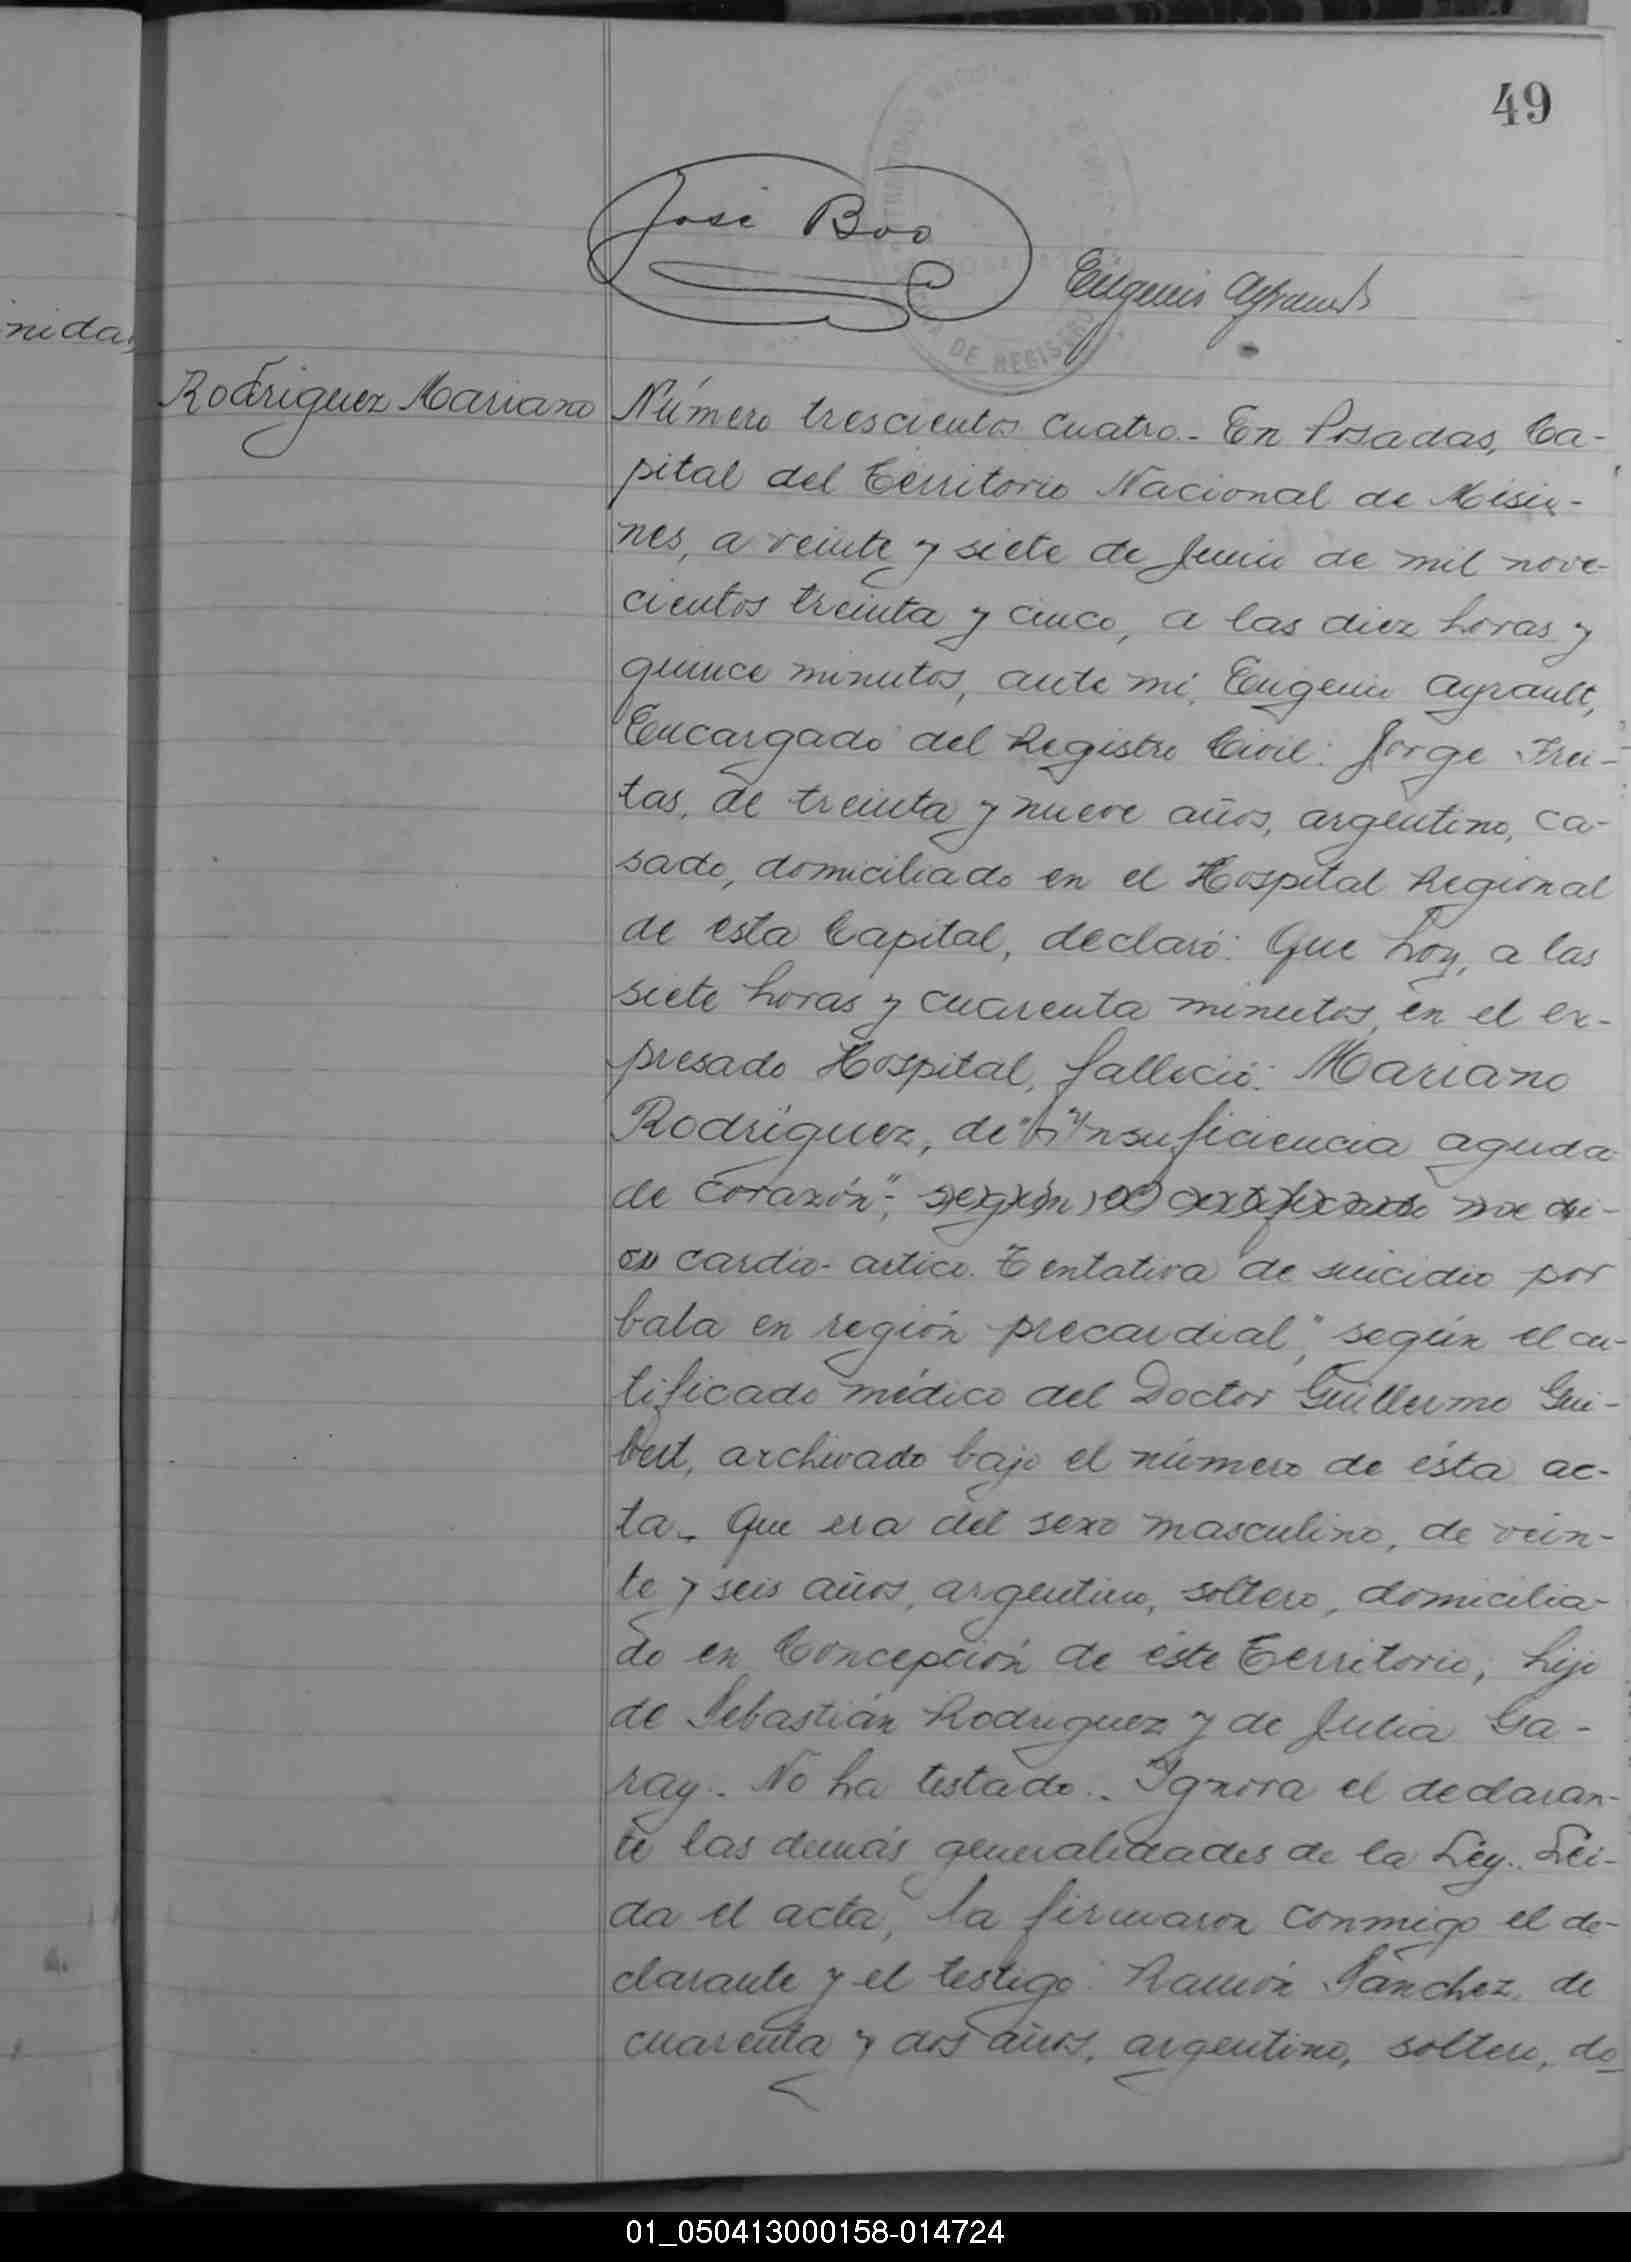 49
José Boo
Eugenio Ayrault
nida,
Rodriguez Mariano
Número trescientos cuatro.- En Posadas, Ca-
pital del Territorio Nacional de Misio-
nes, a veinte y siete de Junio de mil nove-
cientos treinta y cinco, a las diez horas y
quince minutos, ante mí, Eugenio Ayrault,
Encargado del Registro Civil: Jorge Frei-
tas, de treinta y nueve años, argentino, ca-
sado, domiciliado en el Hospital Regional
de esta Capital, declaró: Que hoy, a las
siete horas y cuarenta minutos, en el ex-
presado Hospital, falleció: Mariano
Rodríguez, de "Insuficiencia aguda
de corazón", según el certificado me di-
co cardio-aortico. Tentativa de suicidio por
bala en región precardial", según el cer-
tificado médico del Doctor Guillermo Gui-
bert, archivado bajo el número de ésta ac-
ta. Que era del sexo masculino, de vein-
te y seis años, argentino, soltero, domicilia-
do en Concepción de éste Territorio, hijo
de Sebastián Rodriguez y de Julia Ga-
ray.. No ha testado.. Ignora el declaran-
te las demás generalidades de la Ley.. Lei-
da el acta, la firmaron conmigo el de-
clarante y el testigo: Ramón Sánchez, de
cuarenta y dos años, argentino, soltero, do
01_050413000158-014724